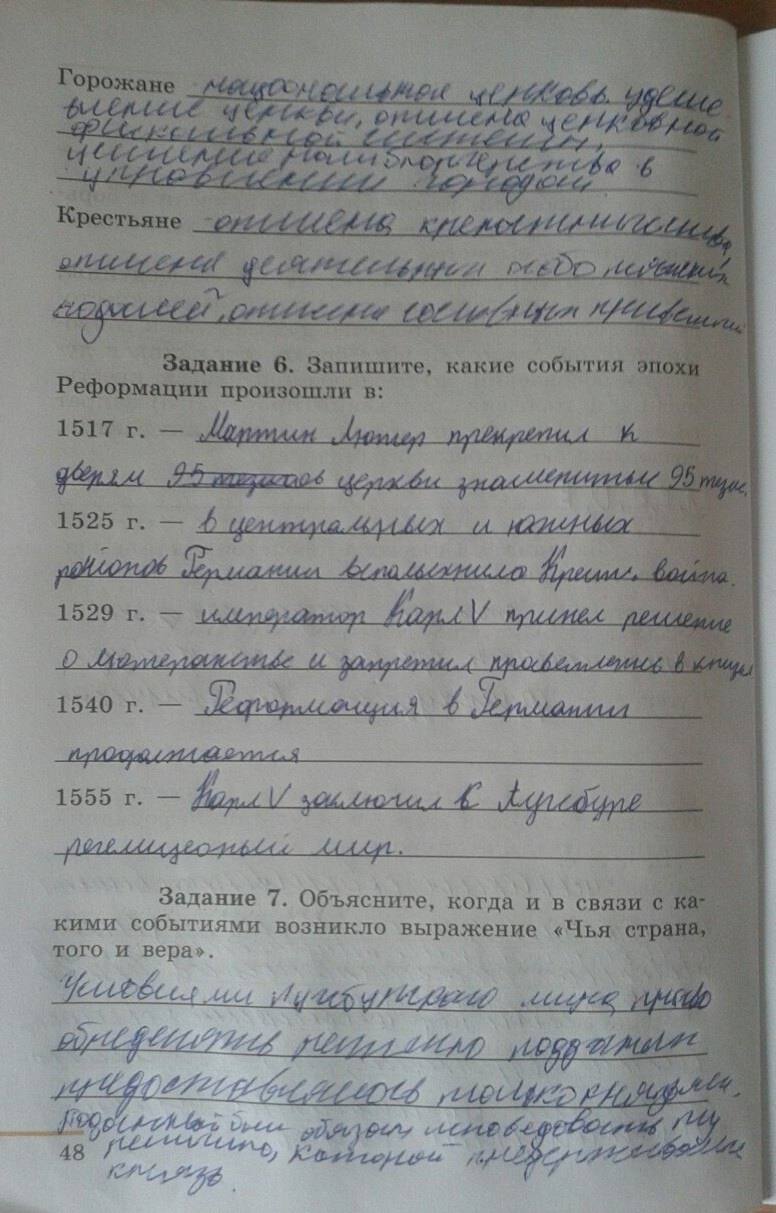 Горожане национальная церковь, удеше
вление церкви, отмена церковной
фискальной системы,
усиление
управлении городом
Крестьяне отмена крепостничества,
отмена
податей, отмена сословных привелегий
Задание 6. Запишите, какие события эпохи
Реформации произошли в:
1517 г. — Мартин Лютер прекрепил к
дверям церкви знаменитые 95 тезис.
1525 г. — в центральных и южных
районов Германии вспыхнула Крест. война.
1529 г. — император Карл V принел решение
о лютеранстве и запретил в
1540 г. — Реформация в Германии
продолжается
1555 г. — Карл V заключил в Аугсбурге
мир.
Задание 7. Объясните, когда и в связи с ка-
кими событиями возникло выражение «Чья страна,
того и вера».
Условиями Аугсбургского мира право
определять религию подданых
предоставлялось только князьям.
Поданный был обязан исповедовать ту
религию, которой предерживался
князь.
48